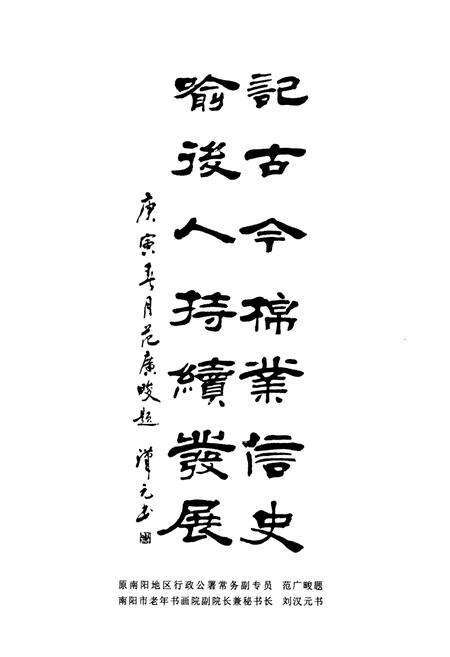 記古今棉業信史
喻後人持續發展
庚寅春月范廣畯題 漢元书
原南阳地区行政公署常务副专员 范广畯题
南阳市老年书画院副院长兼秘书长 刘汉元书